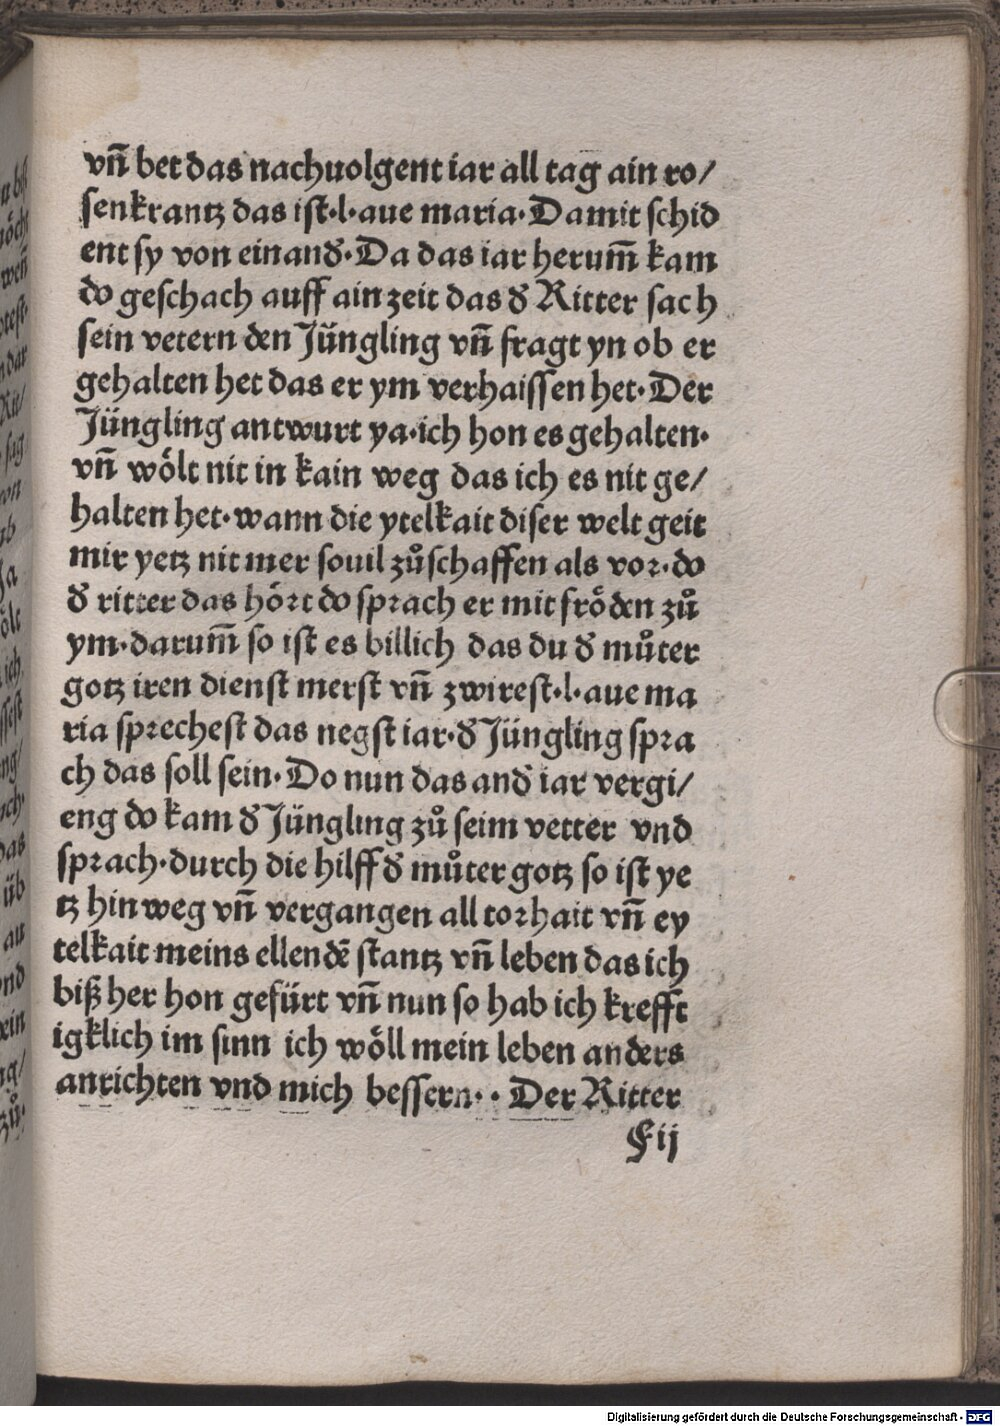 vn̄ bet das nachuolgent iar all tag ain ro/
senkrantz das ist·l·aue maria·Damit schid
ent sy von einand̛·Da das iar herum̄ kam
do geschach auff ain zeit das d̛ Ritter sach
sein vetern den Jüngling vn̄ fragt yn ob er
gehalten het das er ym verhaissen het·Der
Jüngling antwurt ya·ich hon es gehalten·
vn̄ wölt nit in kain weg das ich es nit ge/
halten het·wann die ytelkait diser welt geit
mir yetz nit mer souil zůschaffen als vor·do
d̛ ritter das hört do sprach er mit fröden zů
ym·darum̄ so ist es billich das du d̛ můter
gotz iren dienst merst vn̄ zwirest·l·aue ma
ria sprechest das negst iar·d̛ Jüngling spra
ch das soll sein·Do nun das and̛ iar vergi/
eng do kam d̛ Jüngling zů seim vetter vnd
sprach·durch die hilff d̛ můter gotz so ist ye
tz hin weg vn̄ vergangen all torhait vn̄ ey
telkait meins ellendē stantz vn̄ leben das ich
biß her hon gefürt vn̄ nun so hab ich krefft
igklich im sinn ich wöll mein leben anders
anrichten vnd mich bessern·· Der Ritter
Fij
Digitalisierung gefördert durch die Deutsche Forschungsgemeinschaft - DFG